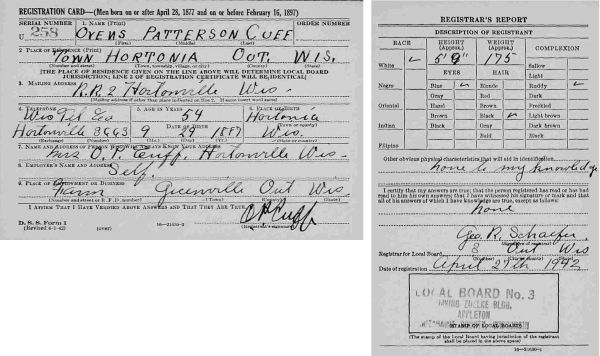 REGISTRATION CARD—(Men born on or after April 28, 1877 and on or before February 16, 1897)
SERIAL NUMBER
1. NAME (Print)
ORDER NUMBER
U 258
OVENS PATTERSON CUFF
(First) (Middle) (Last)
2. PLACE OF RESIDENCE (Print)
TOWN HORTONIA OUT. WIS.
(Number and street) (Town, township, village, or city) (County) (State)
[THE PLACE OF RESIDENCE GIVEN ON THE LINE ABOVE WILL DETERMINE LOCAL BOARD
JURISDICTION; LINE 2 OF REGISTRATION CERTIFICATE WILL BE IDENTICAL]
3. MAILING ADDRESS
R.R. 2 Hortonville Wis-
[Mailing address if other than place indicated on line 2. If same insert word same]
4. TELEPHONE
5. AGE IN YEARS
6. PLACE OF BIRTH
Wis Tel Co
54
Hortonia
DATE OF BIRTH
(Town or county)
Hortonville
9 28 1887
Wis.
(Exchange) (Number)
(Mo.) (Day) (Yr.)
(State or country)
7. NAME AND ADDRESS OF PERSON WHO WILL ALWAYS KNOW YOUR ADDRESS
Mrs O. P. Cuff, Hortonville Wis-
8. EMPLOYER'S NAME AND ADDRESS
Self.
9. PLACE OF EMPLOYMENT OR BUSINESS
Farm Greenville Out Wis.
(Number and street or R. F. D. number) (Town) (County) (State)
I AFFIRM THAT I HAVE VERIFIED ABOVE ANSWERS AND THAT THEY ARE TRUE.
D. S. S. Form 1
(Revised 4-1-42) (over)
O P Cuff
(Registrant's signature)
REGISTRAR'S REPORT
DESCRIPTION OF REGISTRANT
RACE
HEIGHT
(Approx.)
WEIGHT
(Approx.)
COMPLEXION
White
5' 9"
175
Sallow
EYES
HAIR
Light
Negro
Blue
Blonde
Ruddy
Gray
Red
Dark
Oriental
Hazel
Brown
Freckled
Brown
Black
Light brown
Indian
Black
Gray
Dark brown
Bald
Black
Filipino
Other obvious physical characteristics that will aid in identification
none to my knowledge
I certify that my answers are true; that the person registered has read or has had
read to him his own answers; that I have witnessed his signature or mark and that
all of his answers of which I have knowledge are true, except as follows:
none
Geo. R. Schaefer
(Signature of registrar)
Registrar for Local Board
3 Out Wis
(Number) (City or county) (State)
Date of registration April 27th 1942
LOCAL BOARD No. 3
IRVING ZUELKE BLDG.
APPLETON
(STAMP OF LOCAL BOARD)
(The stamp of the Local Board having jurisdiction of the registrant
shall be placed in the above space)